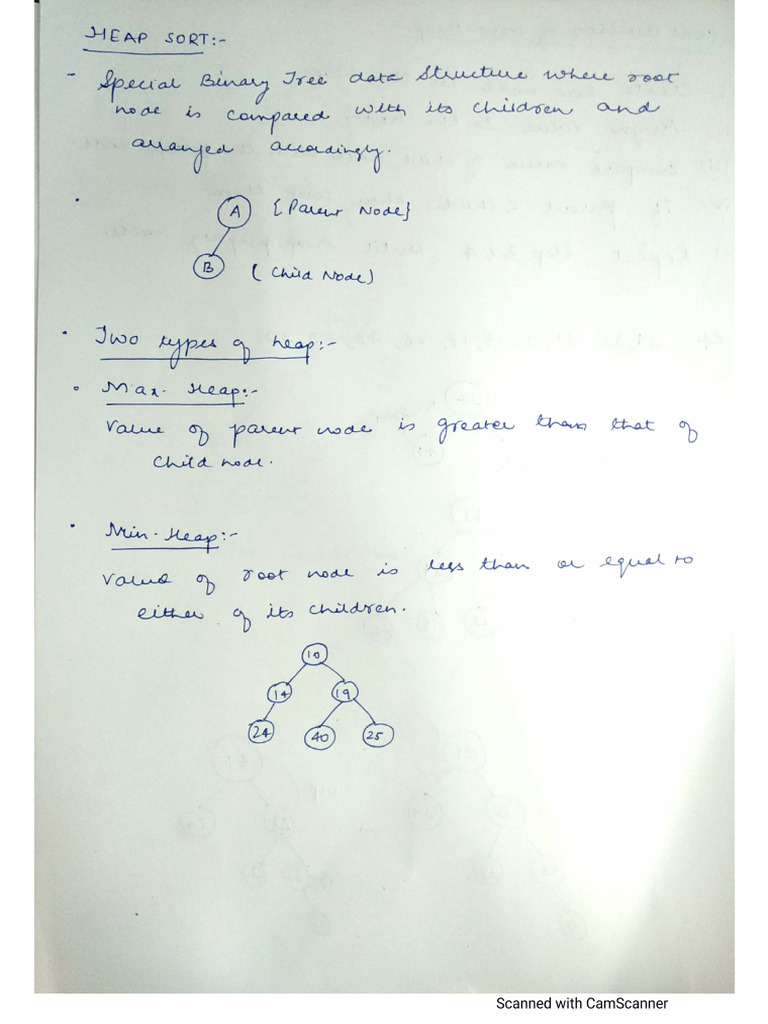 HEAP SORT:-
- Special Binary Tree data structure where root
node is compared with its children and
arranged accordingly.
A {Parent Node}
B ( Child Node)
Two types of heap:-
Max. Heap:-
Value of parent node is greater than that of
child node.
Min. Heap:-
Value of root node is less than or equal to
either of its children.
10
14 19
24 40 25
Scanned with CamScanner